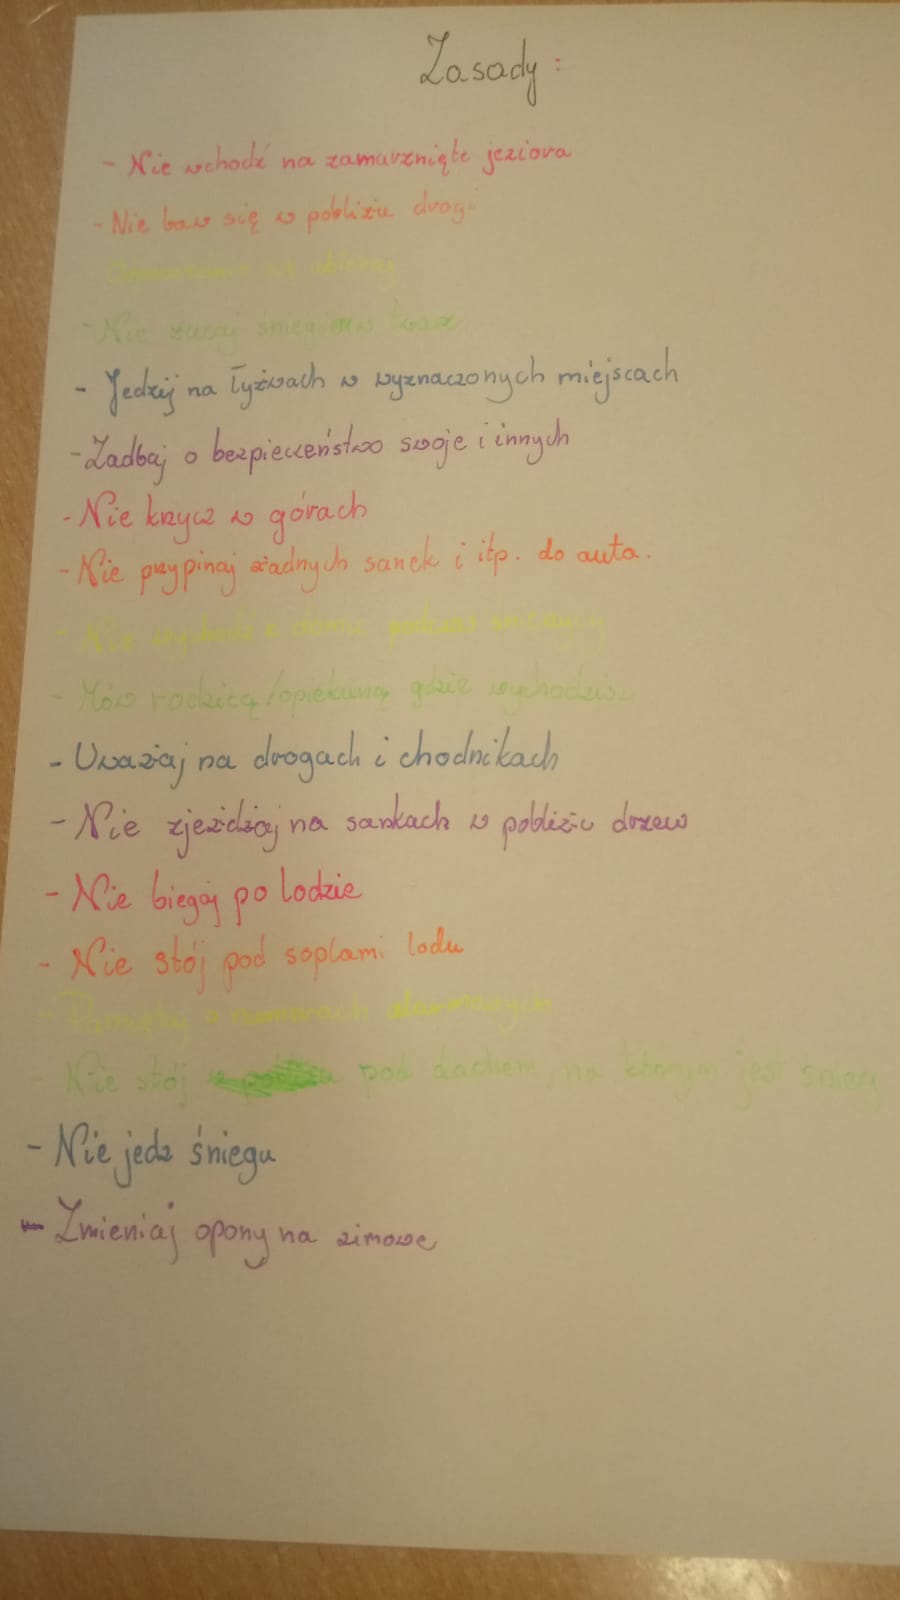 Zasady:
- Nie wchodź na zamarznięte jeziora
- Nie baw się w pobliżu drogi
Odpowiednio się ubieraj
- Nie rzucaj śniegiem w twarz
- Jedzij na łyżwach w wyznaczonych miejscach
- Zadbaj o bezpieczeństwo swoje i innych
- Nie krzycz w górach
- Nie przypinaj żadnych sanek i itp. do auta.
- Nie wychodź z domu podczas śnieżycy
- Mów rodzicą/opiekuną gdzie wychodzisz
- Uważaj na drogach i chodnikach
- Nie zjeżdżaj na sankach w pobliżu drzew
- Nie biegaj po lodzie
- Nie stój pod soplami lodu
- Pamiętaj o numerach alarmowych
- Nie stój pod dachem, na którym jest śnieg
- Nie jedz śniegu
- Zmieniaj opony na zimowe